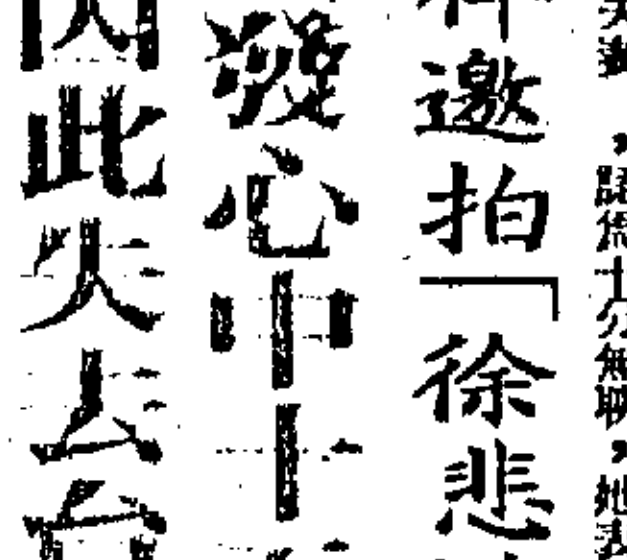 ，認為十分無聊，她表
邀拍「徐悲
發心中十
因此失去台